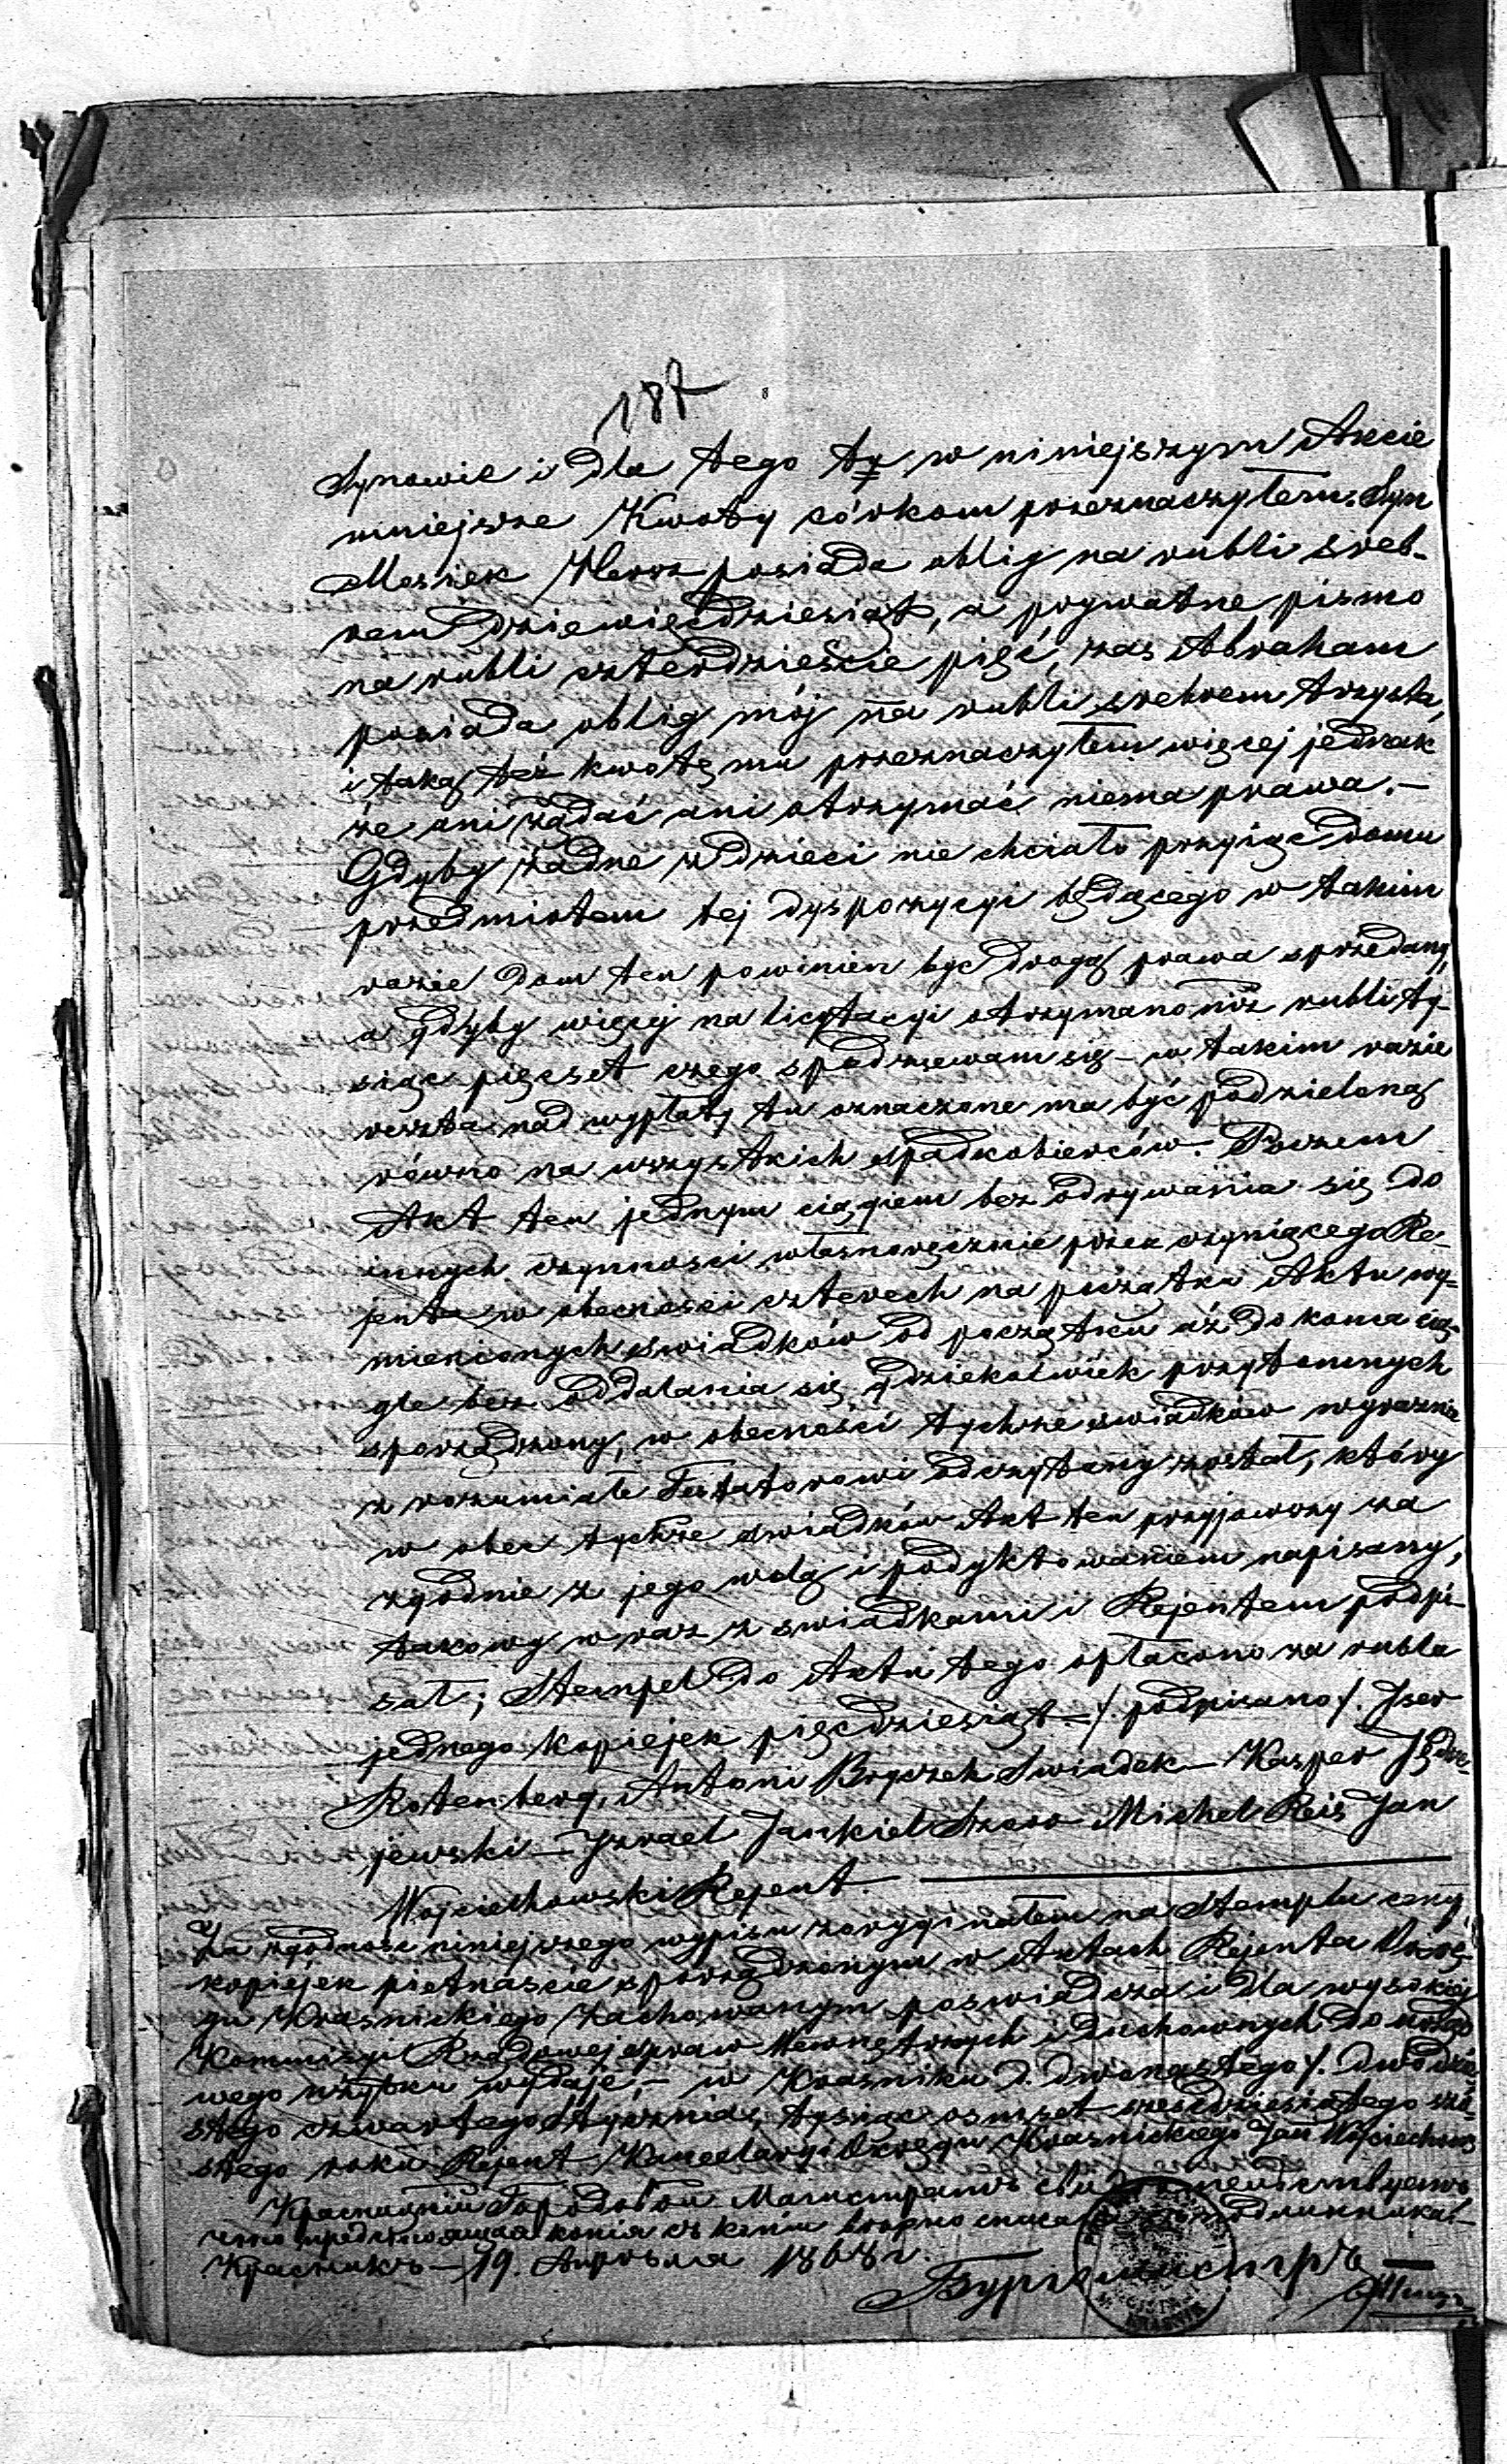 187
Synowie i dla tego ty w niniejszym Akcie
mniejsze Kwoty córkom przeznaczyłem. Syn
Moszek Hersz posiada oblig na rubli sreb-
rem dziewięćdziesiąt, a prywatne pismo
na rubli czterdzieście pięć, zas Abraham
posiada oblig mój na rubli srebrem trzysta,
i taką też kwotę mu przeznaczyłem więcej jednak
że ani żądać ani otrzymać niema prawa.—
Gdyby żadne z dzieci nie chciało przyiąć domu
przedmiotem tej dyspozycyi będącego w takim
razie dom ten powinien być drogą prawa sprzedany,
a gdyby więcej na licytacyi otrzymano niż rubli ty-
siąc pięćset czego spodziewam się — w takim razie
reszta nad wypłaty tu oznaczone ma być podzieloną
równo na wszystkich spadkobierców. Poczem
Akt ten jednym ciągiem bez odrywania się do
innych czynności własnoręcznie przez czyniącego Re-
jenta w obecności czterech na początku Aktu wy-
mienionych swiadków od początku aż do końca cią-
gle bez oddalania się gdziekolwiek przytomnych
sporządzony, w obecności tychże swiadków wyraznie
z rozumiale Testatorowi odczytany został, który
w obec tychże swiadków Akt ten przyjąwszy za
zgodnie z jego wolą i podyktowaniem napisany,
takowy wraz z swiadkami i Rejentem podpi-
sał; Stempel do Aktu tego opłacono za rubla
jednego kopiejek pięćdziesiąt — /. podpisano /. Iser
Rotenberg, Antoni Bryczek Swiadek — Kasper Jędrze-
jewski — Izrael Jankiel Szaro Michel Reis Jan
Wojciechowski Rejent.
Za zgodność niniejszego wypisu z oryginałem na Stemplu ceny
kopiejek piętnaście sporządzonym w Aktach Rejenta Okrę-
gu Krasnickiego zachowanym poswiadcza i dla wysokiej
Kommissyi Rządowej spraw Wewnętrznych i Duchownych do urzędo
wego użytku wydaje — w Krasniku d. dwonastego /. dwódzie
stego czwartego Stycznia tysiąc osmset szescdziesiątego szó-
stego roku Rejent Kancelaryi Okręgu Krasnickiego Jan Wojciechows
Красникскій Городовой Магистратъ свидѣтельствуетъ
что предстоящая копія съ
Красникъ — 19. 1868 г.
Бургомистръ